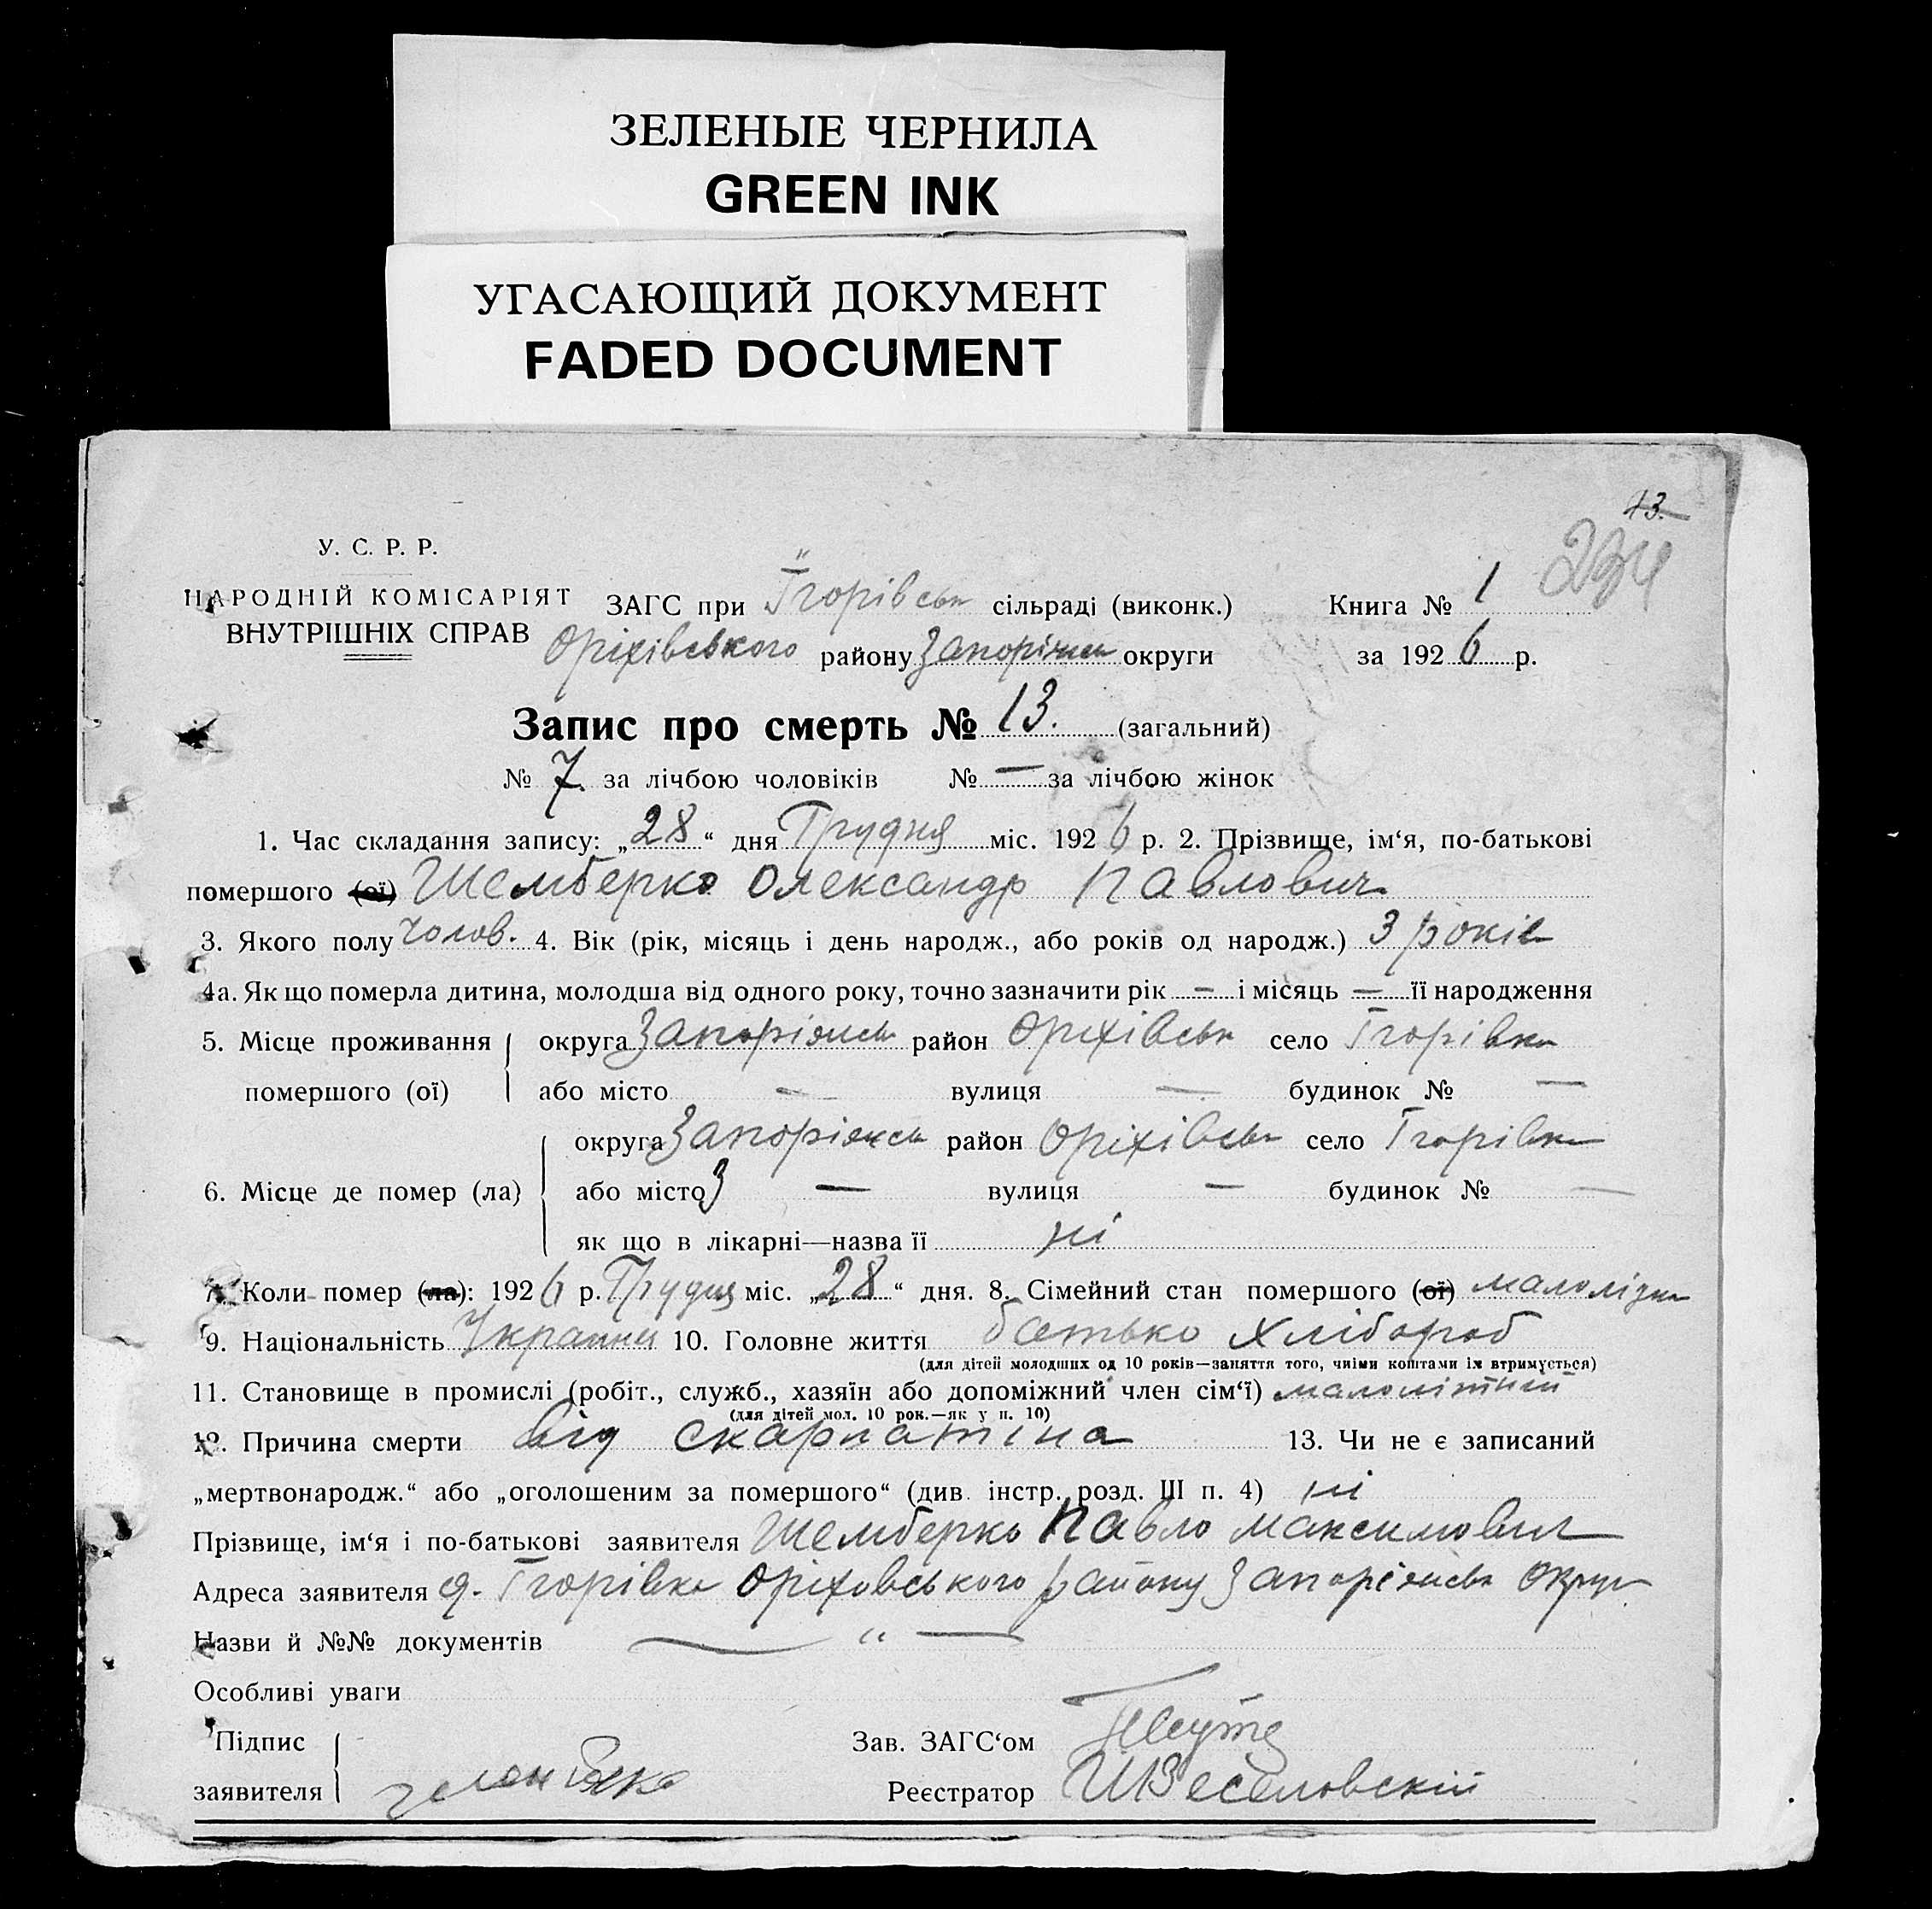 ЗЕЛЕНЫЕ ЧЕРНИЛА
GREEN INK
УГАСАЮЩИЙ ДОКУМЕНТ
FADED DOCUMENT
13.
234
У. С. Р. Р.
НАРОДНІЙ КОМІСАРІЯТ
ВНУТРІШНІХ СПРАВ
ЗАГС при Ігорівськ сільраді (виконк.) Книга № 1
Оріхівського району Запоріжськ округи за 1926 р.
Запис про смерть № 13. (загальний)
№ 7. за лічбою чоловіків № — за лічбою жінок
1. Час складання запису: „28“ дня Грудня міс. 1926 р. 2. Прізвище, ім‘я, по-батькові
помершого (ої) Шемберко Олександр Павлович
3. Якого полу чолов. 4. Вік (рік, місяць і день народж., або років од народж.) 3 років
4а. Як що померла дитина, молодша від одного року, точно зазначити рік — і місяць — її народження
5. Місце проживання помершого (ої) округа Запоріжськ район Оріхівськ село Ігорівка
або місто — вулиця — будинок № —
6. Місце де помер (ла) округа Запоріжськ район Оріхівськ село Ігорівка
або місто З — вулиця — будинок № —
як що в лікарні—назва її ні
7. Коли помер (ла): 1926 р. Грудня міс. „28“ дня. 8. Сімейний стан помершого (ої)
9. Національність 10. Головне життя батько хлібороб
(для дітей молодших од 10 років—заняття того, чиїми коштами їх втримується)
11. Становище в промислі (робіт., служб., хазяїн або допоміжний член сім‘ї) малолітній
(для дітей мол. 10 рок.—як у п. 10)
12. Причина смерти від скарлатіна 13. Чи не є записаний
„мертвонародж.“ або „оголошеним за помершого“ (див. інстр. розд. III п. 4) ні
Прізвище, ім‘я і по-батькові заявителя Шемберко Павло Максимович
Адреса заявителя Ігорівка Оріховського району Запоріжськ округ
Назви й №№ документів — “ —
Особливі уваги
Підпис заявителя
Зав. ЗАГС‘ом
Реєстратор Веселовскій